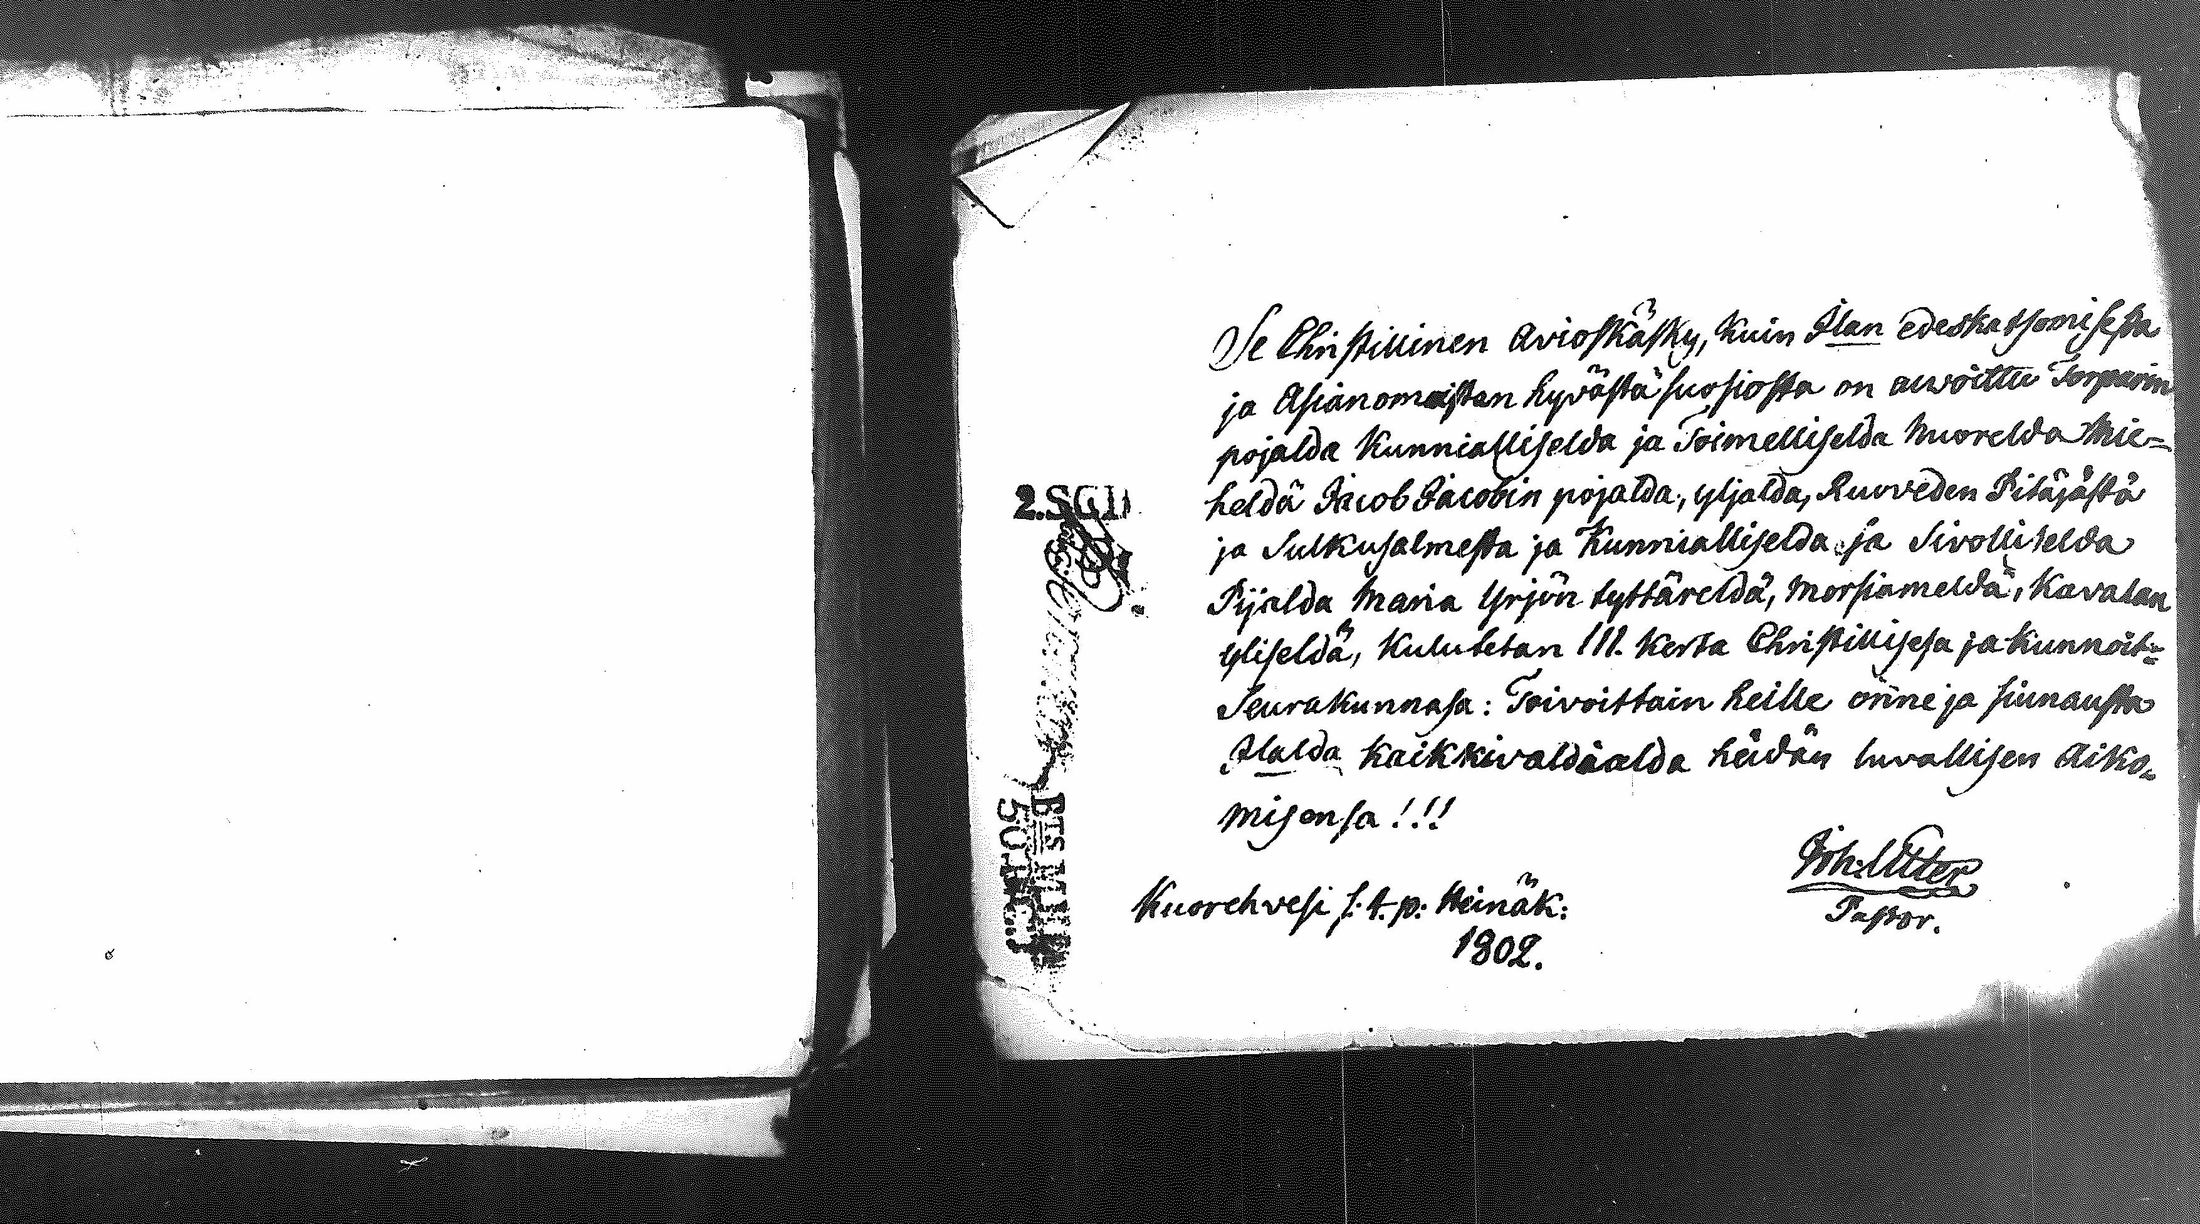 Se Christillinen Avioskäsky, kuin Ilan edeskatsomisesta
ja Asianomaisten hyvästä suosiosta on auvoittu Torparin
pojalda kunnialliselda ja Toimelliselda Nuorelda Mie=
heldä Jacob Jacobin pojalda, yljalda, Ruoveden Pitäjästä
ja Sulkusalmesta ja Kunnialliselda ja Sivolliselda
Pijalda Maria Yrjön tyttäreldä, morsiameldä, Kavalan
yliseldä, kulutetan III. kerta Christillisesa ja kunnoit=
Seurakunnasa: Toivoittain heille onne ja siunausta
Ilalda kaikkivaldialda heidän luvallisen Aiko=
misensa!!!
Joh. Utter
Pastor.
Kuorehvesi s. 4. p: Heinäk:
1802.
2. SGD